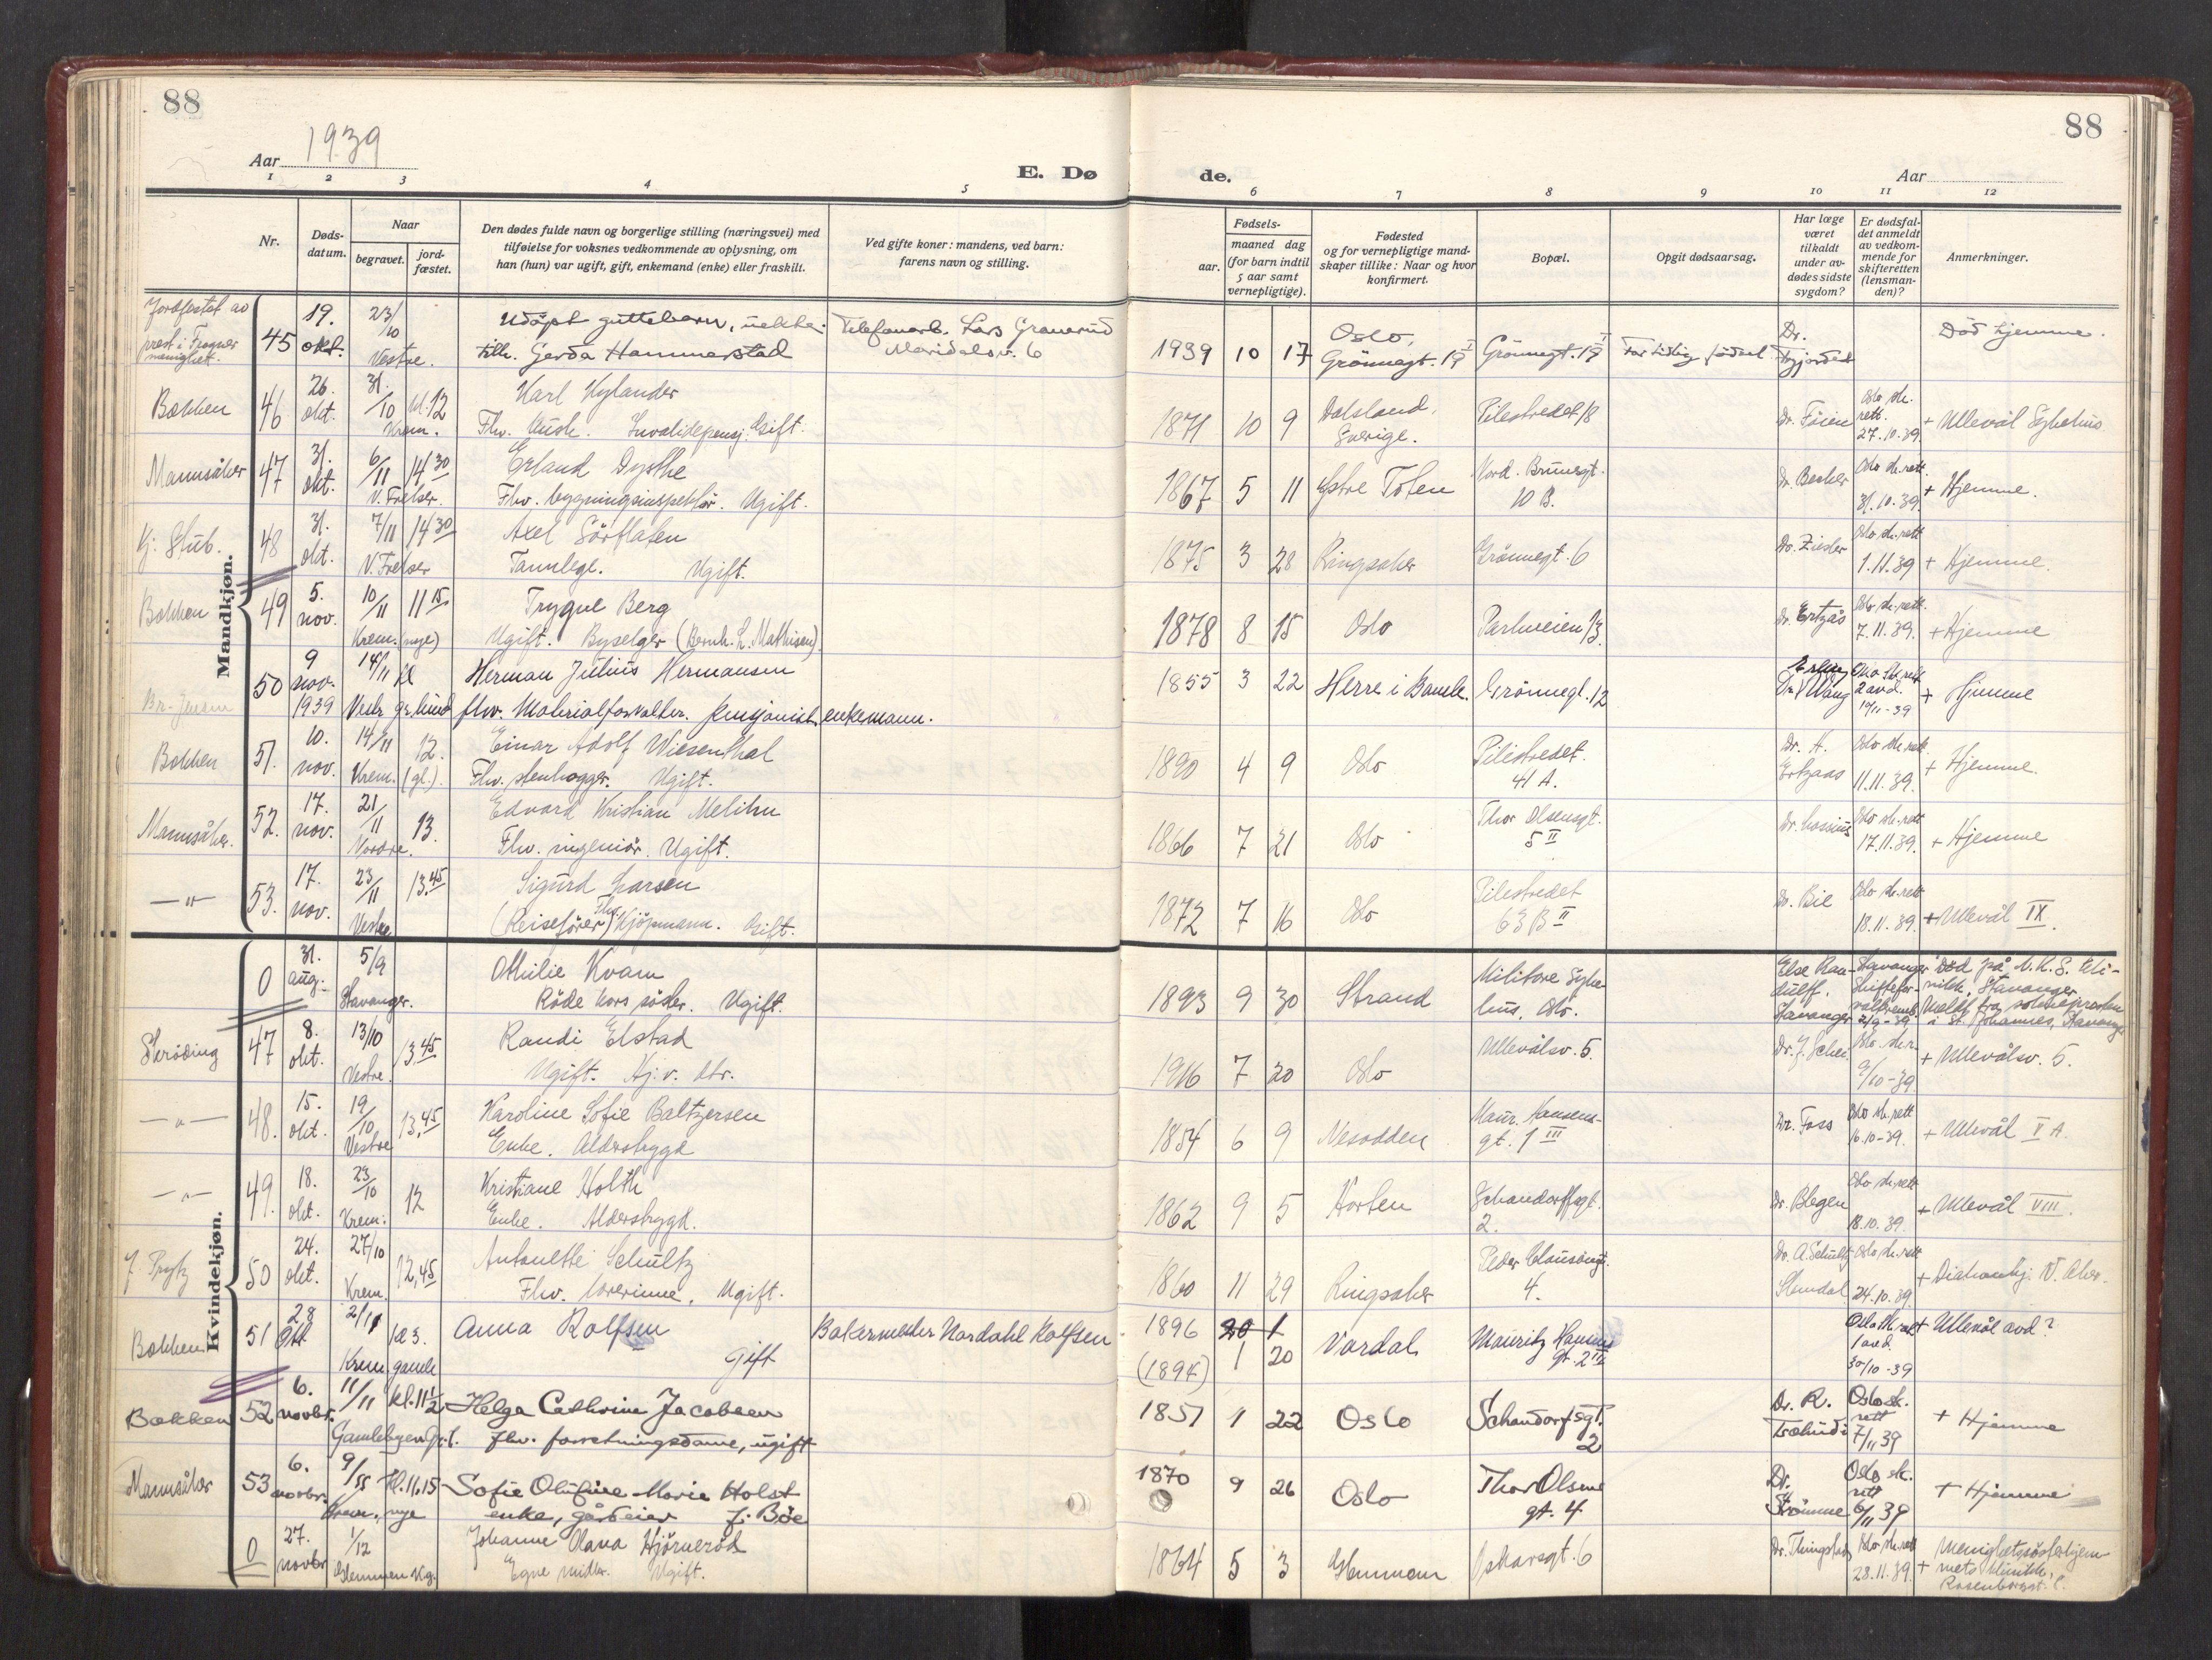 88
88
Aar 1939
E. Dø
de.
Aar
1 2 3 4 5 6 7 8 9 10 11 12
Nr.
Døds-
datum.
Naar
begravet.
jord-
fæstet.
Den dødes fulde navn og borgerlige stilling (næringsvei) med
tilføielse for voksnes vedkommende av oplysning, om
han (hun) var ugift, gift, enkemand (enke) eller fraskilt.
Ved gifte koner: mandens, ved barn:
farens navn og stilling.
Fødsels-
aar.
maaned dag
(for barn indtil
5 aar samt
vernepligtige).
Fødested
og for vernepligtige mand-
skaper tillike: Naar og hvor
konfirmert.
Bopæl.
Opgit dødsaarsag.
Har læge
været
tilkaldt
under av-
dødes sidste
sygdom?
Er dødsfal-
det anmeldt
av vedkom-
mende for
skifteretten
(lensman-
den)?
Anmerkninger.
Mandkjøn.
Jordfestet av
prest i Frogner
menighet.
45 19. okt. 23/10 Vestre.
Udøpt guttebarn, uekte.
Gerda Hammerstad
Telefonarb. Lars Granerud
Maridalsv. 6
1939 10 17 Oslo,
Grønnegt. 19 I Grønnegt. 19 I For tidlig fødsel Dr. Død hjemme.
Bakken 46 26. okt. 31/10 kl. 12 Krem.
Karl Kylander
Fhv. Invalidepensj. Gift.
1871 10 9 Dalsland, Sverige. Pilestredet 18 Dr. Føien Oslo sk. rett. 27.10.39. + Ullevål Sykehus
Mannsåker 47 31. okt. 6/11 14 30 V. Frelser.
Erland Dysthe
Fhv. bygningsinspektør. Ugift.
1867 5 11 Østre Toten Nord. Brunsgt. 10 B. Dr. Becker Oslo sk. rett 31.10.39. + Hjemme.
Kj. Stub. 48 31. okt. 7/11 14 30 V. Frelser
Axel Sörflaten
Tannlege. Ugift.
1875 3 28 Ringsaker Grønnegt. 6 Dr. Ziesler Oslo sk. rett 1.11.39 + Hjemme.
Bakken 49 5. nov. 10/11 11 15 Krem. (nye)
Trygve Berg
Ugift. Byselger (Bernh. L. Mathisen).
1878 8 15 Oslo Parkveien 13. Dr. Ertzås Oslo sk. rett. 7.11.39. + Hjemme
50 9 nov. 1939 14/11 Vestr. gr.lund
Herman Julius Hermansen
fhv. Materialforvalter. Pensjonist, enkemann.
1855 3 22 Herre i Bamble. Grønnegt. 12 Oslo sk. rett 2 avd. 10/11-39 + Hjemme
Bakken 51. 10. nov. 14/11 12. Krem. (gl.)
Einar Adolf Wiesenthal
Fhv. stenhogger. Ugift.
1890 4 9 Oslo Pilestredet. 41 A. Dr. A. Ertzaas Oslo sk. rett. 11.11.39. + Hjemme.
Mannsåker. 52. 17. nov. 21/11 13. Nordre.
Edvard Kristian Melihn
Fhv. ingeniør. Ugift.
1866 7 21 Oslo Thor Olsensgt. 5 II Dr. Lossius Oslo sk. rett 17.11.39. + Hjemme
— " — 53. 17. nov. 23/11 13.45 Vestre
Sigurd Larsen
(Reisefører) Fhv. Kjøpmann. Gift.
1872 7 16 Oslo Pilestredet 63 B II Dr. Bie Oslo sk. rett 18.11.39. + Ullevål IX.
Kvindekjøn.
0 31. aug. 5/9 Stavanger.
Othilie Kvam
Røde Kors søster. Ugift.
1893 9 30 Strand Militære Syke-
hus, Oslo. Stavanger 2/9-39 Død på N.K.S. Kli-
nikk, Stavanger.
Meldt fra sokneprosten
i St. Johannes, Stavanger
Skrøding 47 8. okt. 13/10 13.45 Vestre.
Randi Elstad
Ugift. Hj.v. dtr.
1916 7 20 Oslo Ullevålsv. 5. Oslo sk.r. 9/10-39 + Ullevålsv. 5.
— " — 48. 15. okt. 19/10 13.45 Vestre
Karoline Sofie Baltzersen
Enke. Alderstrygd
1854 6 9 Nesodden Maur. Hansens-
gt. 1 III Dr. Foss Oslo sk. rett 16.10-39. + Ullevål V A.
— " — 49. 18. okt. 23/10 12 Krem.
Kristiane Holth
Enke. Alderstrygd.
1862 9 5 Horten Schandorffsgt. 2. Dr. Blegen Oslo sk. rett 18.10.39. + Ullevål VIII.
J. Prytz 50 24. okt. 27/10 12,45 Krem.
Antonette Schultz
Fhv. lærerinne. Ugift.
1860 11 29 Ringsaker Peder Claussønsgt. 4. Dr. A. Schultz Oslo sk. rett 24.10.39. + Diakonhj. V. Aker.
Bakken 51 28 Okt 2/11 kl 3. Krem. gamle
Anna Rolfsen
Gift
Bakermester Nordahl Rolfsen
1896 20 1
(1894) 1 20 Vardal Mauritz Hansens gt. 2 III Oslo sk. rett 1 avd. 30/10-39 + Ullevål avd?
Bakken 52 6. novbr. 11/11 kl. 11 1/2 Gamlebyen Gr.l.
Helga Cathrine Jacobsen
fhv. forretningsdame, ugift
1851 1 22 Oslo Schandorfsgt. 2 Dr. R. Tschudi Oslo sk. rett 7/11 39 + Hjemme
Mannsåker 53 6. novbr. 9/11 kl. 11.15 Krem. nye
Sofie Olufine Marie Holst
enke, gårdeier f. Bøe
1870 9 26 Oslo Thor Olsens gt. 4 Dr. Strømme Oslo sk. rett 6/11 39 + Hjemme
0 27. novbr 1/12 Glemmen Kg.
Johanne Olava Hjørnerød
Egne midler. Ugift.
1864 5 3 Glemmen Oskarsgt. 6 Dr. Thingstad Oslo sk. rett 28.11.39. + Menighetssøsterhjem-
mets klinikk,
Rosenborggt.